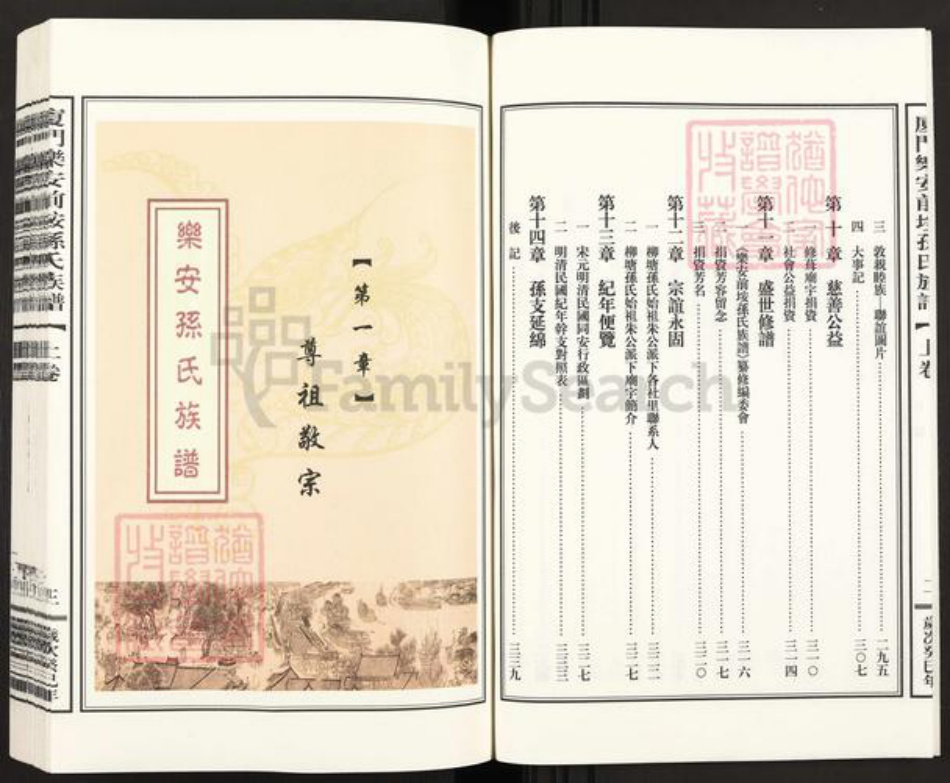 三 敦親睦族—聯誼圖片 二九五
四 大事記 三〇七
第十章 慈善公益
一 修葺廟宇捐資 三一〇
二 社會公益捐資 三一四
第十一章 盛世修譜
一 《樂安前垵孫氏族譜》纂修編委會 三一六
二 捐資芳容留念 三一七
三 捐資芳名 三二〇
第十二章 宗誼永固
一 柳塘孫氏始祖朱公派下各社里聯系人
二 柳塘孫氏始祖朱公派下廟宇簡介
第十三章 紀年便覽
一 宋元明清民國同安行政區劃
二 明清民國紀年幹支對照表
第十四章 孫支延綿
後記
廈門樂安前垵孫氏族譜【上卷
歲次癸巳年
【第一章】
尊祖敬宗
樂安孫氏族譜
廈門樂安前垵孫氏族譜【上卷
歲次癸巳年
FamilySearch